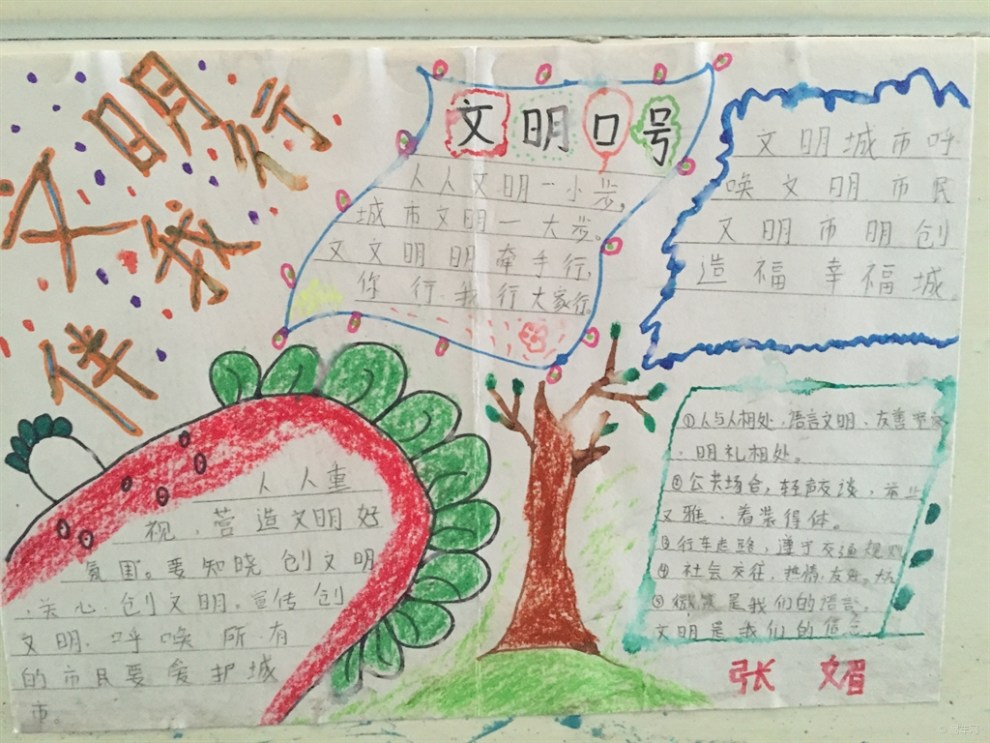 文明行
伴我
文明口号
人人文明一小步,
城市文明一大步。
文文明明牵手行,
你行我行大家行
文明城市呼
唤文明市民
文明市明创
造福幸福城。
①人与人相处,语言文明,友善
,明礼相处。
②公共场合,轻声交谈,举止
文雅,着装得体。
③行车走路,遵守交通规则
④社会交往,热情友
⑤微笑是我们的语言,
文明是我们的信
人人重
视,营造文明好
氛围。要知晓创文明
,关心创文明,宣传创
文明,呼唤所有
的市民要爱护城
市。
张媚